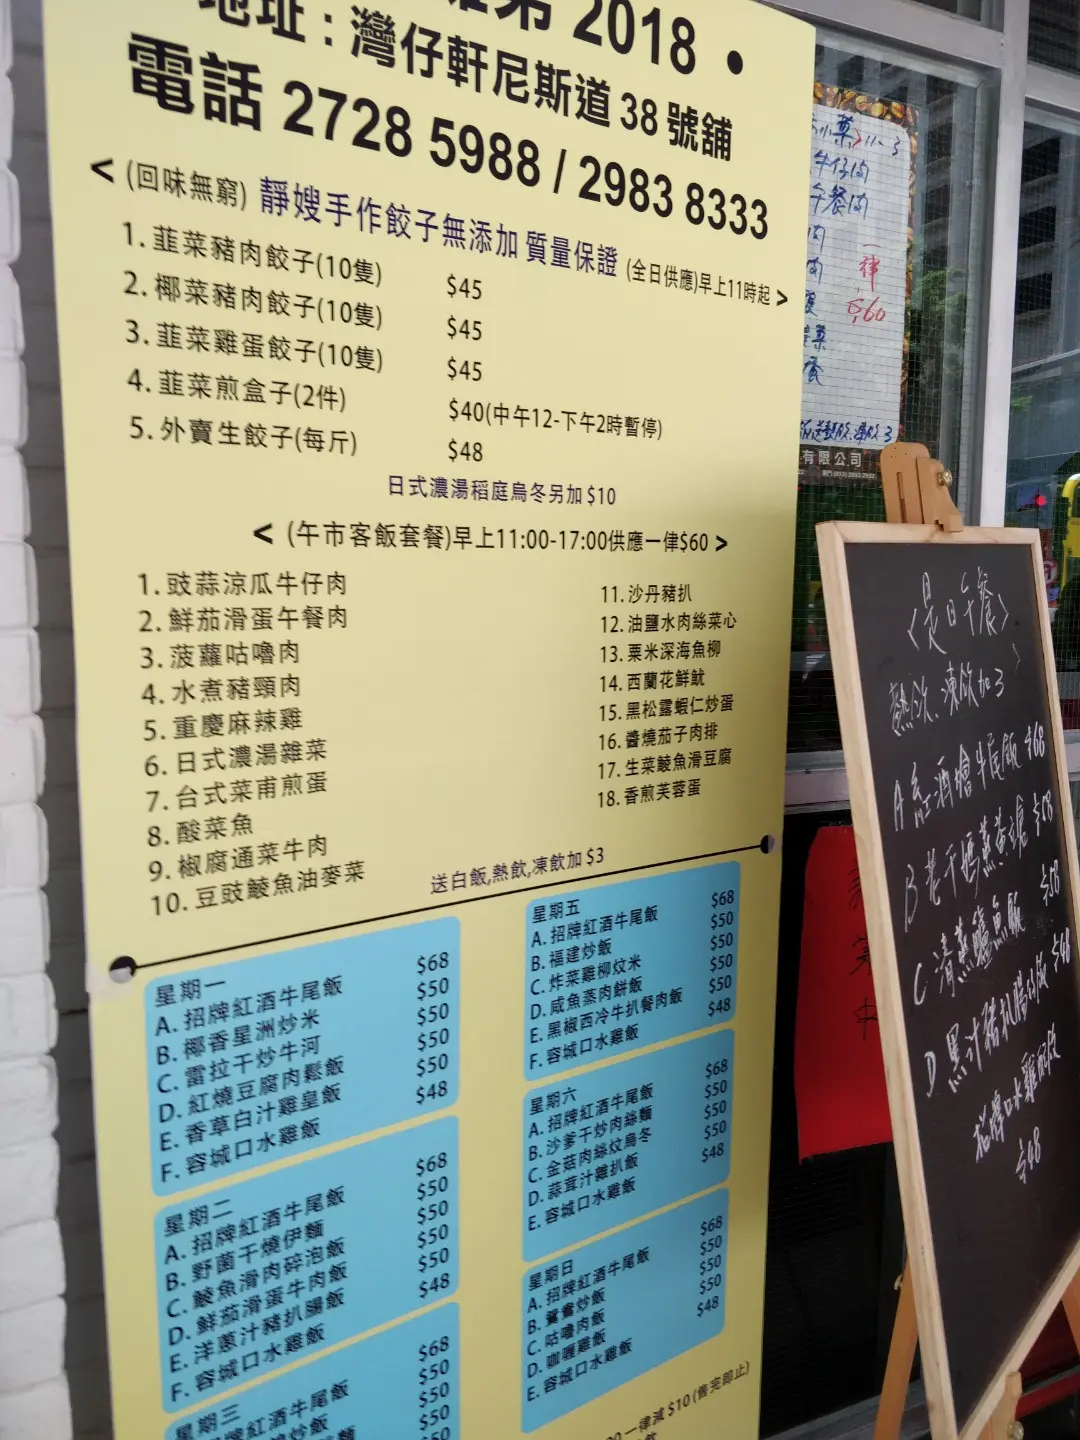 2018 •
地址 : 灣仔軒尼斯道 38 號舖
電話 2728 5988 / 2983 8333
< (回味無窮) 靜嫂手作餃子無添加 質量保證 (全日供應)早上11時起 >
1. 韮菜豬肉餃子(10隻) $45
2. 椰菜豬肉餃子(10隻) $45
3. 韮菜雞蛋餃子(10隻) $45
4. 韮菜煎盒子(2件) $40(中午12-下午2時暫停)
5. 外賣生餃子(每斤) $48
日式濃湯稻庭烏冬另加 $10
< (午市客飯套餐)早上11:00-17:00供應一律$60 >
1. 豉蒜涼瓜牛仔肉
2. 鮮茄滑蛋午餐肉
3. 菠蘿咕嚕肉
4. 水煮豬頸肉
5. 重慶麻辣雞
6. 日式濃湯雜菜
7. 台式菜甫煎蛋
8. 酸菜魚
9. 椒腐通菜牛肉
10. 豆豉鯪魚油麥菜
11. 沙丹豬扒
12. 油鹽水肉絲菜心
13. 粟米深海魚柳
14. 西蘭花鮮魷
15. 黑松露蝦仁炒蛋
16. 醬燒茄子肉排
17. 生菜鯪魚滑豆腐
18. 香煎芙蓉蛋
送白飯,熱飲,凍飲加 $3
星期一
A. 招牌紅酒牛尾飯 $68
B. 椰香星洲炒米 $50
C. 雷拉干炒牛河 $50
D. 紅燒豆腐肉鬆飯 $50
E. 香草白汁雞皇飯 $50
F. 容城口水雞飯 $48
星期二
A. 招牌紅酒牛尾飯 $68
B. 野菌干燒伊麵 $50
C. 鯪魚滑肉碎泡飯 $50
D. 鮮茄滑蛋牛肉飯 $50
E. 洋蔥汁豬扒腸飯 $50
F. 容城口水雞飯 $48
星期三
紅酒牛尾飯 $68
炒飯 $50
麵 $50
$50
$50
星期五
A. 招牌紅酒牛尾飯 $68
B. 福建炒飯 $50
C. 炸菜雞柳炆米 $50
D. 咸魚蒸肉餅飯 $50
E. 黑椒西冷牛扒餐肉飯 $50
F. 容城口水雞飯 $48
星期六
A. 招牌紅酒牛尾飯 $68
B. 沙爹干炒肉絲麵 $50
C. 金菇肉絲炆烏冬 $50
D. 蒜茸汁雜扒飯 $50
E. 容城口水雞飯 $48
星期日
A. 招牌紅酒牛尾飯 $68
B. 鴛鴦炒飯 $50
C. 咕嚕肉飯 $50
D. 咖喱雞飯 $50
E. 容城口水雞飯 $48
一律減 $10 (售完即止)
小菜 11- 3
牛仔肉
午餐肉
肉
一律
$60
有限公司
<是日午餐>
熱飲、凍飲加3
A 紅酒燴牛尾飯 $68
B 老干媽蒸 $58
C 清蒸鱸魚飯 $58
D 黑汁豬扒腸仔飯 $48
招牌口水雞飯
$48